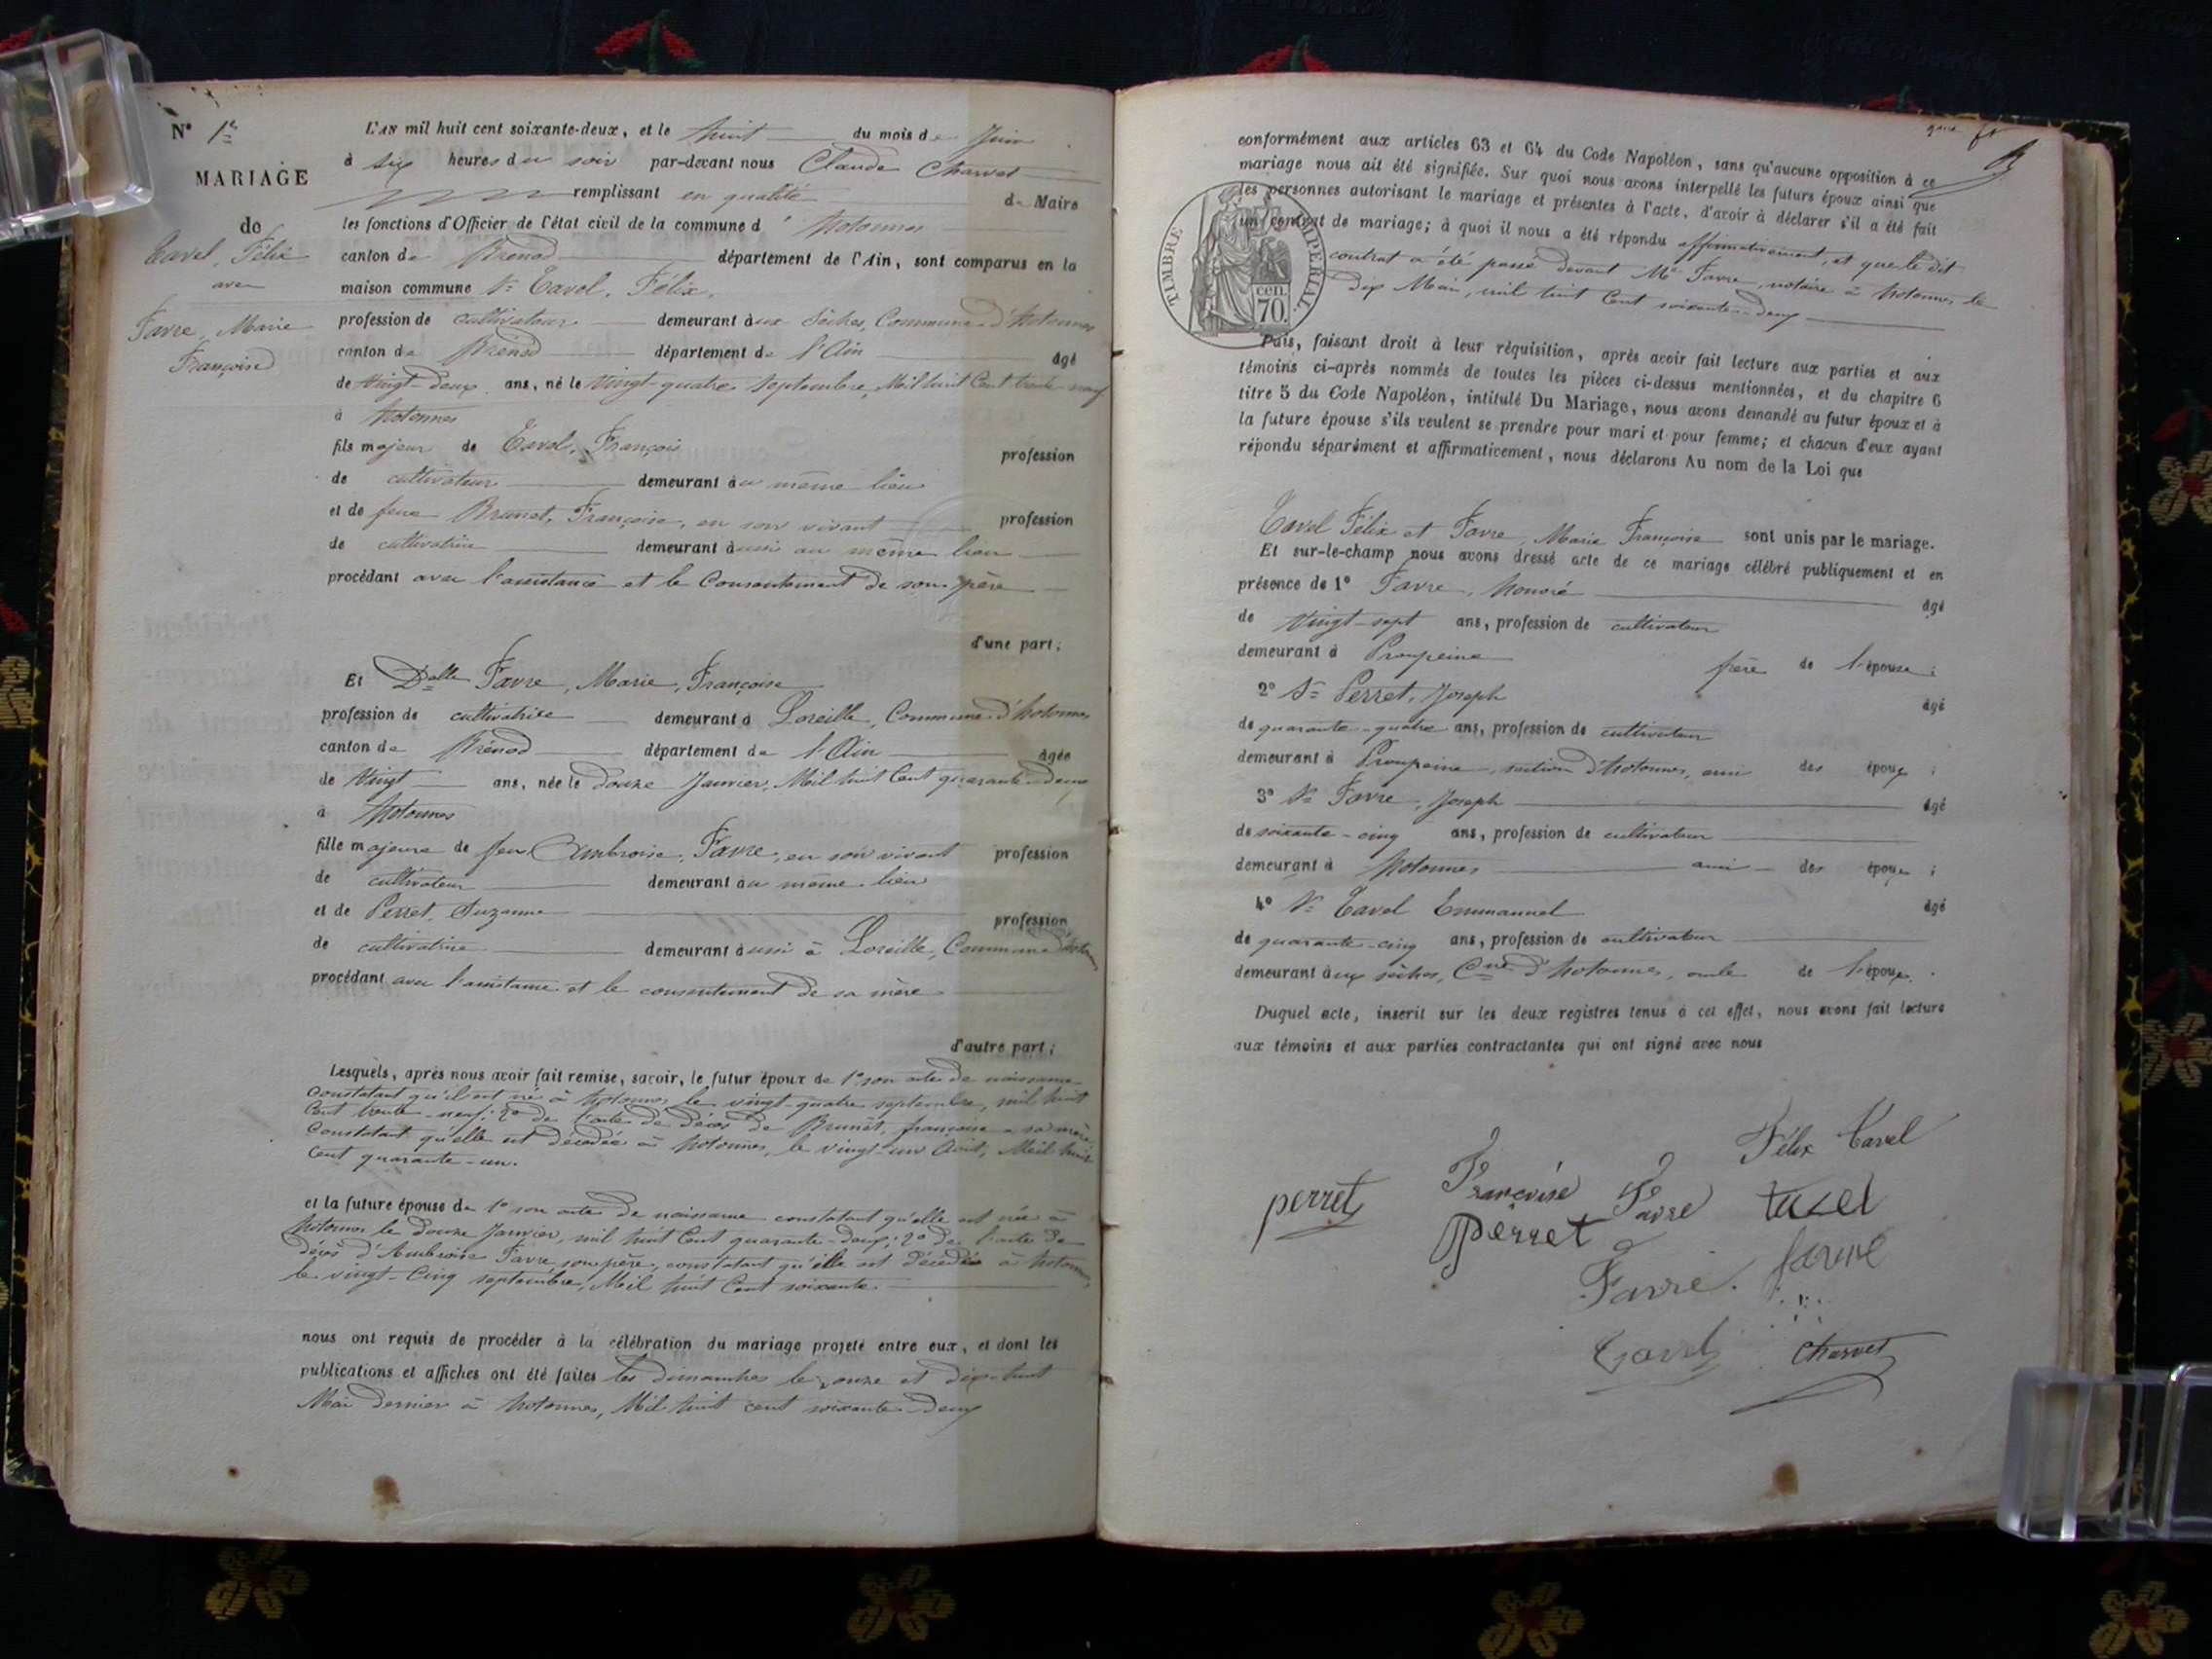 N° 1er
MARIAGE
de
Tavel, Félix
avec
Favre, Marie
Françoise
L'AN mil huit cent soixante-deux, et le huit du mois de Juin
à six heures du soir par-devant nous Claude Charvet
remplissant en qualité de Maire
les fonctions d'Officier de l'état civil de la commune d'hotonnes
canton de Brénod département de l'Ain, sont comparus en la
maison commune Sr Tavel, Félix,
profession de cultivateur demeurant aux Sèches, Commune d'hotonnes
canton de Brénod département de l'Ain âgé
de Vingt-deux ans, né le Vingt-quatre septembre, Mil huit Cent trente neuf
à hotonnes
fils majeur de Tavel, François profession
de cultivateur demeurant au même lieu
et de feue Brunet, Françoise, en son vivant profession
de cultivatrice demeurant aussi au même lieu
procédant avec l'assistance et le Consentement de son père
d'une part;
Et Delle Favre, Marie, Françoise
profession de cultivatrice demeurant à Loreille, Commune d'hotonnes
canton de Brénod département de l'Ain âgée
de Vingt ans, née le douze Janvier, Mil huit Cent quarante-deux
à hotonnes
fille majeure de feu Ambroise, Favre, en son vivant profession
de cultivateur demeurant au même lieu
et de Perret, Suzanne profession
de cultivatrice demeurant aussi à Loreille, Commune d'hotonnes
procédant avec l'assistance et le consentement de sa mère
d'autre part;
Lesquels, après nous avoir fait remise, savoir, le futur époux de 1° son acte de naissance
constatant qu'il est né à hotonnes le vingt-quatre septembre, mil huit
Cent trente-neuf; 2° de l'acte de décès de Brunet, françoise sa mère,
Constatant qu'elle est décédée à hotonnes, le vingt-un Août, Mil huit
cent quarante-un.
et la future épouse de 1° son acte de naissance constatant qu'elle est née à
hotonnes le douze Janvier, mil huit Cent quarante-deux; 2° de l'acte de
décès d'Ambroise Favre, son père, constatant qu'il est décédé à hotonnes,
le vingt-Cinq septembre, Mil huit Cent soixante.
nous ont requis de procéder à la célébration du mariage projeté entre eux, et dont les
publications et affiches ont été faites les dimanches le onze et dix-huit
Mai dernier à hotonnes, Mil huit cent soixante-deux
conformément aux articles 63 et 64 du Code Napoléon, sans qu'aucune opposition à ce
mariage nous ait été signifiée. Sur quoi nous avons interpellé les futurs époux ainsi que
les personnes autorisant le mariage et présentes à l'acte, d'avoir à déclarer s'il a été fait
un contrat de mariage; à quoi il nous a été répondu affirmativement, et que le dit
contrat a été passé devant Me Favre, notaire à hotonnes le
dix Mai, mil huit Cent soixante-deux
TIMBRE IMPERIAL.
70 cen.
Puis, faisant droit à leur réquisition, après avoir fait lecture aux parties et aux
témoins ci-après nommés de toutes les pièces ci-dessus mentionnées, et du chapitre 6
titre 5 du Code Napoléon, intitulé Du Mariage, nous avons demandé au futur époux et à
la future épouse s'ils veulent se prendre pour mari et pour femme; et chacun d'eux ayant
répondu séparément et affirmativement, nous déclarons Au nom de la Loi que
Tavel Félix et Favre, Marie Françoise sont unis par le mariage.
Et sur-le-champ nous avons dressé acte de ce mariage célébré publiquement et en
présence de 1° Favre, honoré âgé
de Vingt-sept ans, profession de cultivateur
demeurant à Proupeine frère de l'épouse;
2° Sr Perret, Joseph âgé
de quarante-quatre ans, profession de cultivateur
demeurant à Proupeine, section d'hotonnes, ami des époux;
3° Sr Favre, Joseph âgé
de soixante-cinq ans, profession de cultivateur
demeurant à hotonnes ami des époux;
4° Sr Tavel Emmanuel âgé
de quarante-cinq ans, profession de cultivateur
demeurant aux sèches, Cne d'hotonnes, oncle de l'époux.
Duquel acte, inscrit sur les deux registres tenus à cet effet, nous avons fait lecture
aux témoins et aux parties contractantes qui ont signé avec nous
Félix Tavel
perret Françoise Favre tavel
perret
Favre. favre
Tavel Charvet